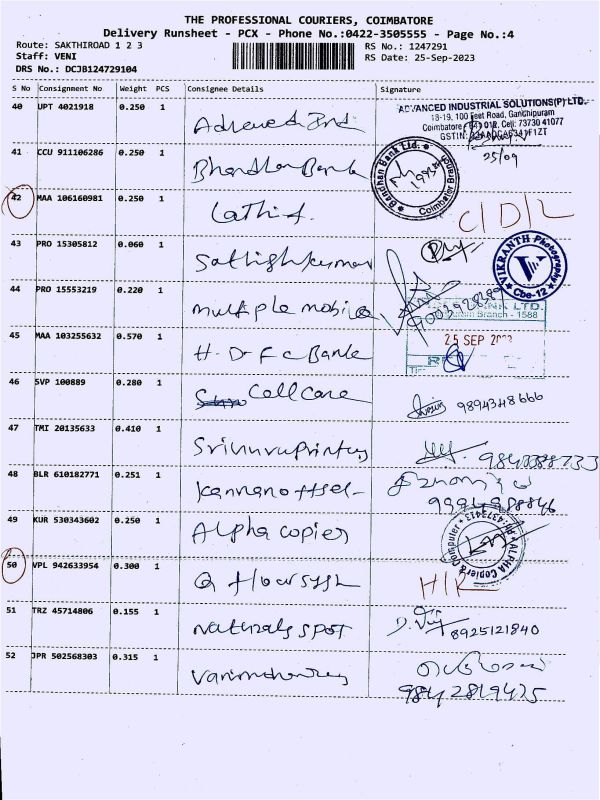 THE PROFESSIONAL COURIERS, COIMBATORE
Delivery Runsheet - PCX - Phone No.:0422-3505555 - Page No.:4
Route: SAKTHIROAD 1 2 3
RS No.: 1247291
Staff: VENI
RS Date: 25-Sep-2023
DRS No.: DCJB124729104
S No Consignment No Weight PCS Consignee Details Signature
40 UPT 4021918 0.250 1
ADVANCED INDUSTRIAL SOLUTIONS(P) LTD.
18-19, 100 Feet Road, Ganthipuram
Coimbatore 641 012. Cell: 73730 41077
25/09
41 CCU 911106286 0.250 1 Bandhan Bank
Bandhan Bank Ltd.
Coimbatore Branch
42 MAA 106160981 0.250 1 Lathif. C/D/L
43 PRO 15305812 0.060 1 Sathishkumar
VIKRANTH Photography
Cbe-12
44 PRO 15553219 0.220 1 multiple mobile 9003928389
BANK LTD.
Branch - 1588
45 MAA 103255632 0.570 1 H.D.F.C Bank
25 SEP 2023
46 SVP 100889 0.280 1 Cell Care 9894348666
47 TMI 20135633 0.410 1
48 BLR 610182771 0.251 1 9994988846
49 KUR 530343602 0.250 1 Alpha copier
50 VPL 942633954 0.300 1
51 TRZ 45714806 0.155 1 Naturals SPOT 8925121840
52 JPR 502568303 0.315 1
9842819425